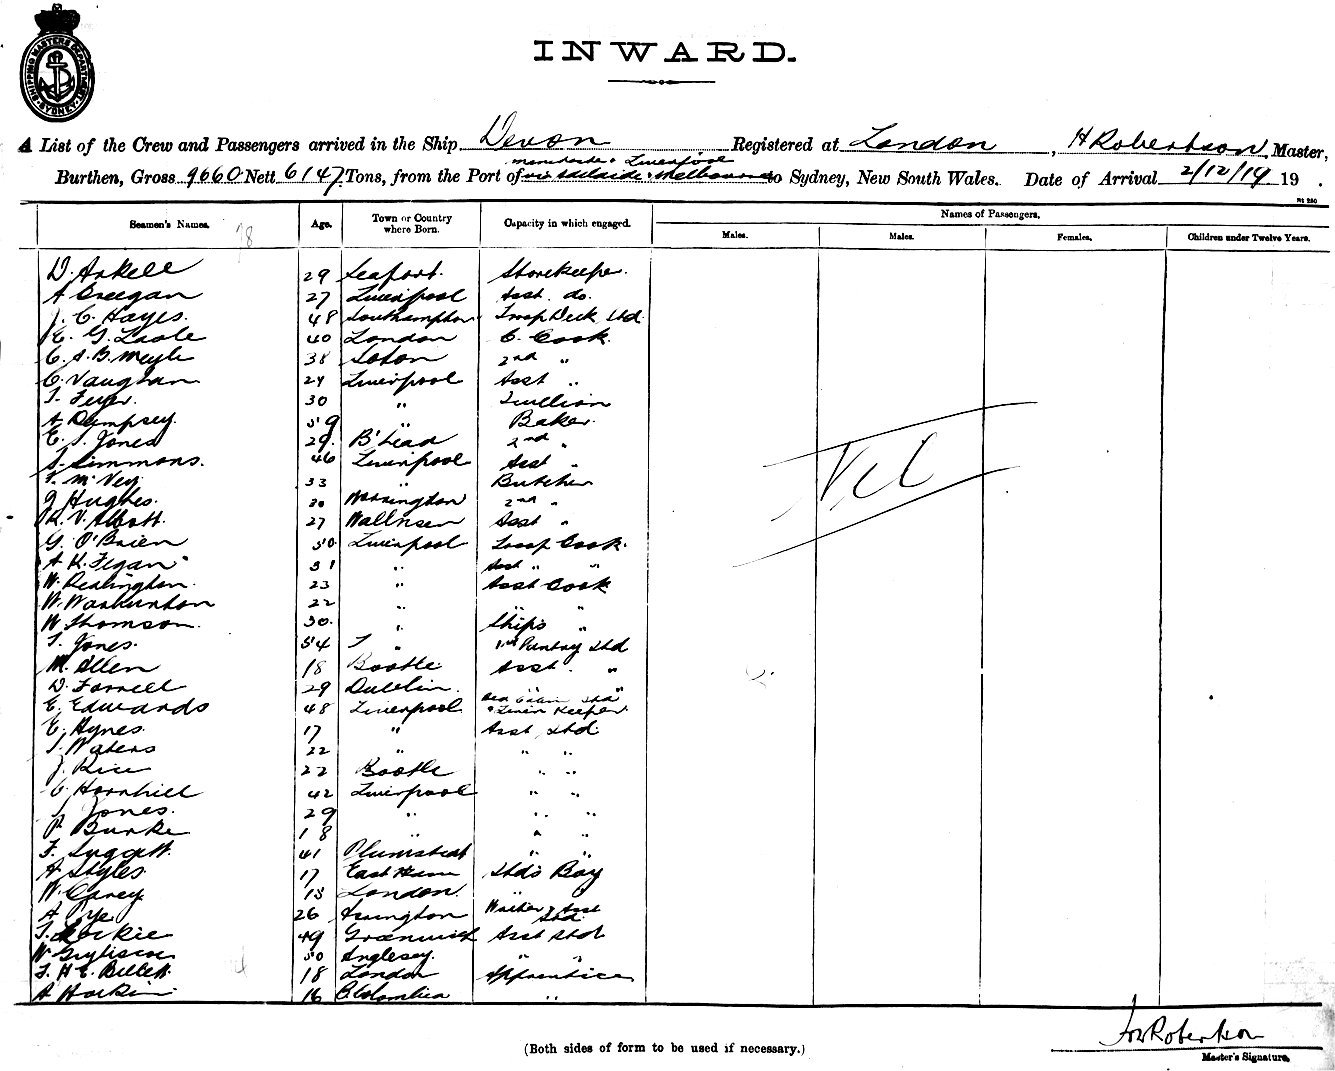 SHIPPING MASTERS DEPARTMENT SYDNEY
INWARD.
A List of the Crew and Passengers arrived in the Ship Devon Registered at London, H Robertson, Master,
Burthen, Gross 9660 Nett 6147 Tons, from the Port of Manchester & Liverpool via Adelaide & Melbourne to Sydney, New South Wales. Date of Arrival 2/12/19 19 .
Seamen's Names. Age. Town or Country where Born. Capacity in which engaged. Names of Passengers.
Males. Males. Females. Children under Twelve Years.
D. Arkell 29 Seaport. Storekeeper.
A Creegan 27 Liverpool Asst. do.
J. C. Hayes. 48 Southampton Troop Deck Std.
E. G. 40 London C. Cook.
C. A. B. 38 2nd "
C. Vaughan 24 Liverpool Asst "
T. 30 " Scullion
A Dempsey. 59 " Baker.
E. S. Jones 29. B'head 2nd "
S. Simmons. 46 Liverpool Asst "
T. McVey. 33 " Butcher
J Hughes. 20 Warrington 2nd "
R. V. Abbott. 27 Asst "
G. O'Brien 50 Liverpool Troop Cook.
A K. Fegan 51 " Asst " "
W. 23 " Asst Cook
W. 22 " " "
W Thomson. 30. " Ship's "
T. Jones. 54 " 1st Pantry Std
M. Allen 18 Bootle Asst. "
D. Farrell 29 Dublin. " "
E. Edwards 48 Liverpool Std & Linen Keeper.
E. Hynes. 17 " Asst. Std.
T. Waters 22 " " "
J. Rice 22 Bootle " "
C Hornhill 42 Liverpool " "
Jones. 29 " " "
P. Burke 18 " " "
F. 41 Plumstead " "
A Styles. 17 East Ham Std's Boy
W. Carey 18 London.
A Pye 26 Asst Std.
T. 49 Greenwich Asst Std
W 50 Anglesey. " "
F. H. E. 18 London Apprentice
A 16 B. Columbia "
Nil
(Both sides of form to be used if necessary.)
Robertson
Master's Signature.